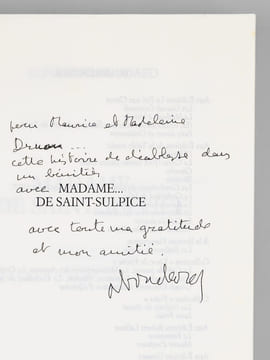 pour Maurice et Madeleine
Druon...
cette histoire de diablesse dans
un bénitier
avec MADAME...
DE SAINT-SULPICE
avec toute ma gratitude
et mon amitié.